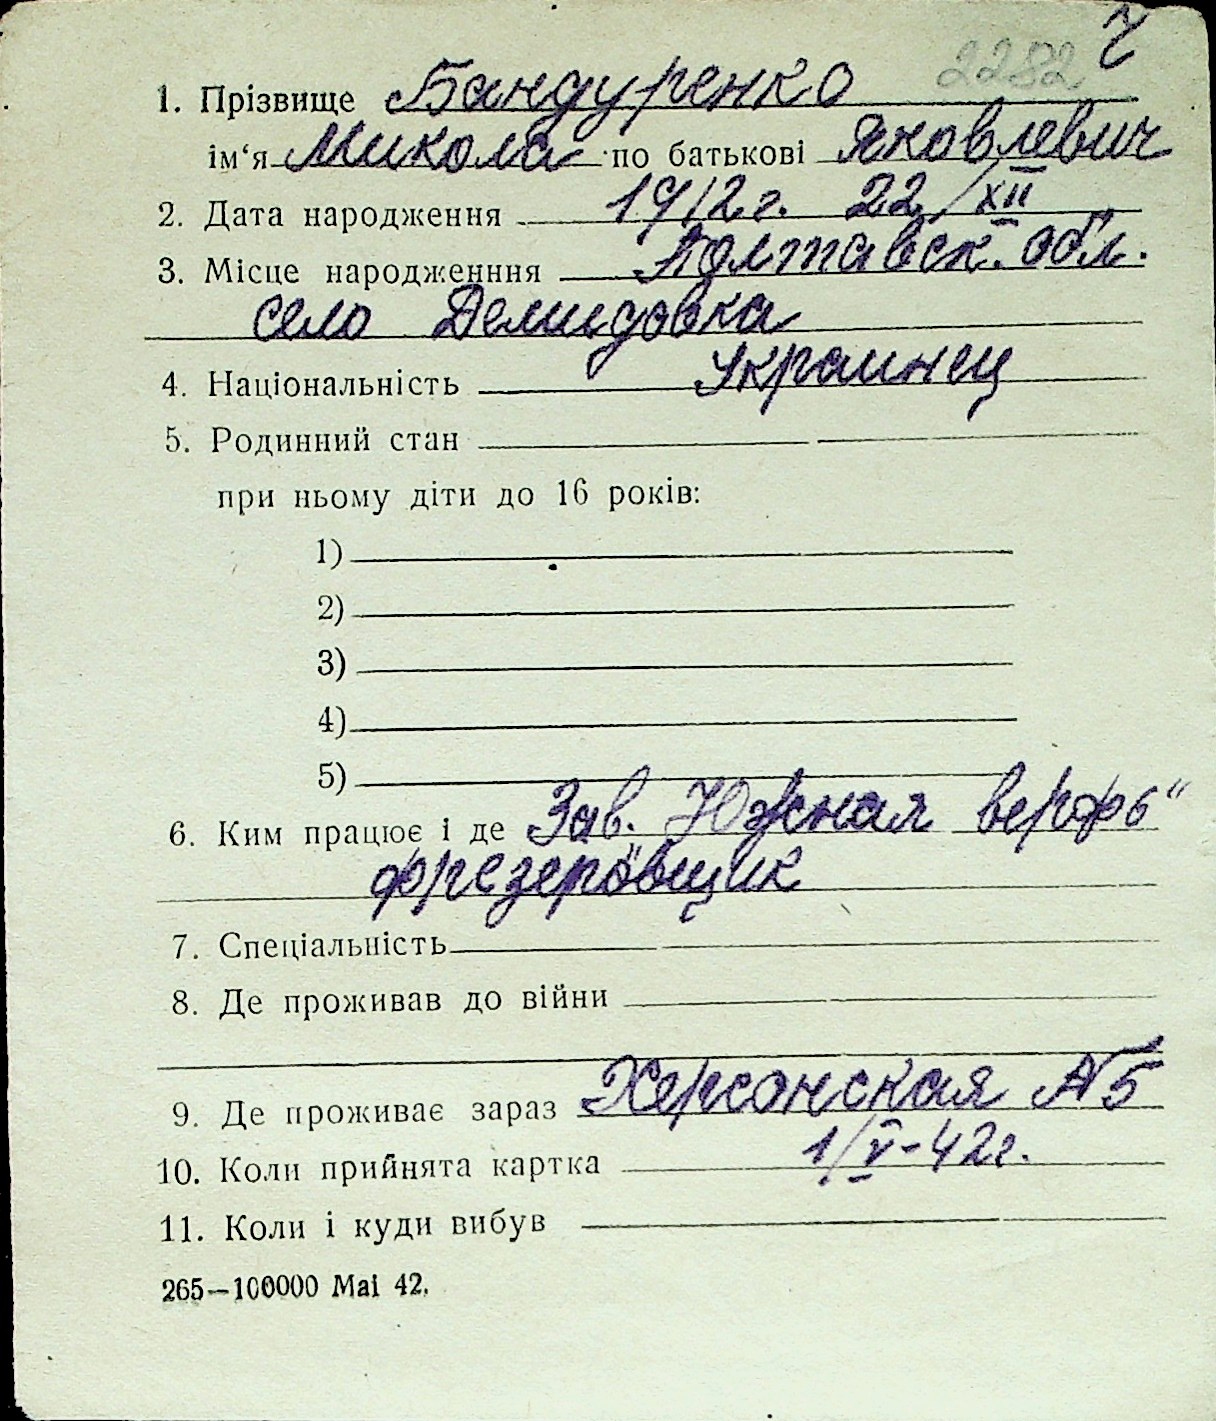 2282 Ч
1. Прізвище Бандуренко
ім‘я Микола по батькові Яковлевич
2. Дата народження 1912 г. 22/XII
3. Місце народженння Полтавск. обл.
село Демидовка
4. Національність Украинец
5. Родинний стан
при ньому діти до 16 років:
1)
2)
3)
4)
5)
6. Ким працює і де Зав. „Южная верфь“
фрезеровщик
7. Спеціальність
8. Де проживав до війни
9. Де проживає зараз Херсонская №5
10. Коли прийнята картка 1/V-42г.
11. Коли і куди вибув
265—100000 Mai 42.